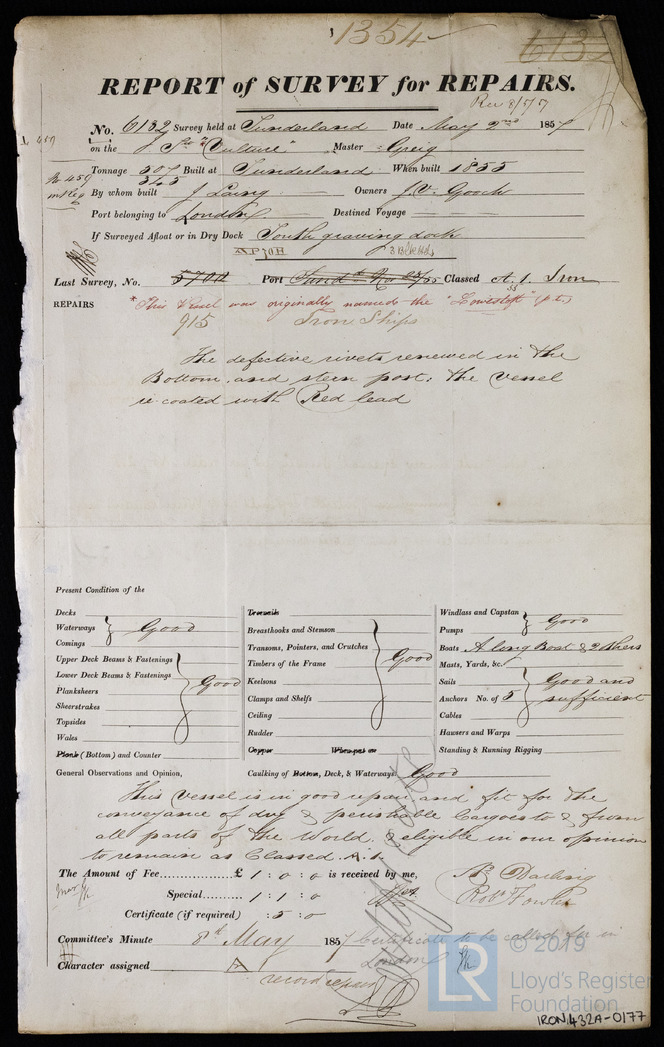 1354
6132
REPORT of SURVEY for REPAIRS.
Rec 8/5/57
No. 6132 Survey held at Sunderland Date May 2nd 1857
on the "Vulture" Master Greig
Tonnage 507 Built at Sunderland When built 1855
545
By whom built J Laing Owners J. V. Gooch
Port belonging to London Destined Voyage
If Surveyed Afloat or in Dry Dock South graving dock
3 Blkhds
Last Survey, No. Port Classed A.1. Iron
REPAIRS * This Vessel was originally named the "Lowestoft"
915 Iron Ships
The defective rivets renewed in the
Bottom, and stern post; the vessel
re-coated with Red lead
Present Condition of the
Decks
Waterways Good
Comings
Upper Deck Beams & Fastenings
Lower Deck Beams & Fastenings
Planksheers Good
Sheerstrakes
Topsides
Wales
Plank (Bottom) and Counter
Treenails
Breasthooks and Stemson
Transoms, Pointers, and Crutches
Timbers of the Frame Good
Keelsons
Clamps and Shelfs
Ceiling
Rudder
Copper When put on
Windlass and Capstan Good
Pumps
Boats A long Boat & 2 others
Masts, Yards, &c.
Sails Good and
Anchors No. of 5 sufficient
Cables
Hawsers and Warps
Standing & Running Rigging
General Observations and Opinion, Caulking of Bottom, Deck, & Waterways Good
This vessel is in good repair and fit for the
conveyance of dry & perishable Cargoes to & from
all parts of the World. & eligible in our opinion
to remain as Classed A.1.
The Amount of Fee £ 1 : 0 : 0 is received by me,
Special 1 : 1 : 0
Robt Fowler
Certificate (if required) : 5 : 0
Committee's Minute 8th May 1857 Certificate to be called for in
London
Character assigned A 1
record repairs
© 2019
LR
Lloyd's Register
Foundation
IRON432A-0177